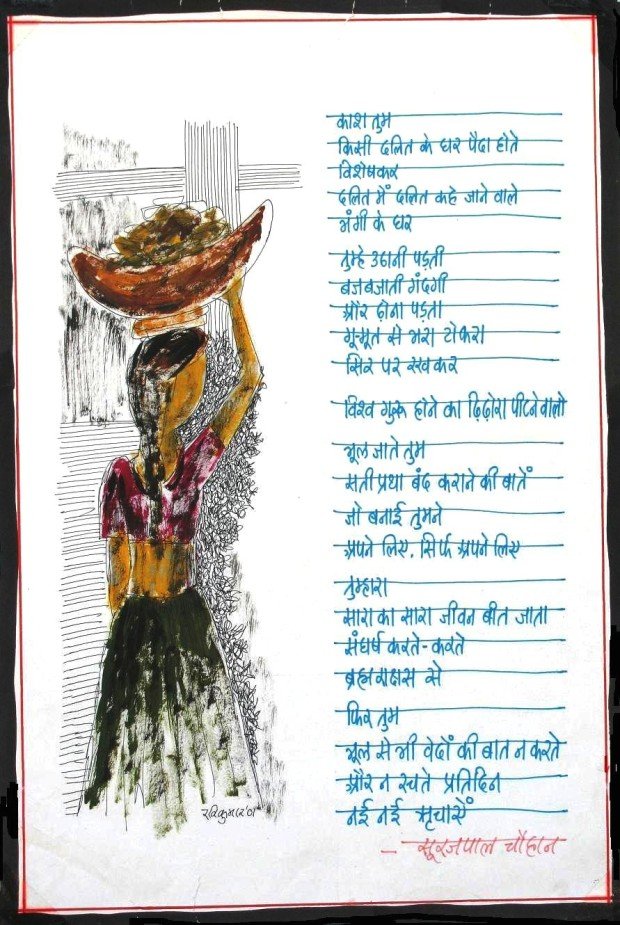 काश तुम
किसी दलित के घर पैदा होते
विशेषकर
दलित में दलित कहे जाने वाले
भंगी के घर
तुम्हे उठानी पड़ती
बजबजाती गंदगी
और ढ़ोना पड़ता
गू-मूत से भरा टोकरा
सिर पर रखकर
विश्व गुरू होने का ढिढ़ोरा पीटने वालो
भूल जाते तुम
सती प्रथा बंद कराने की बातें
जो बनाई तुमने
अपने लिए, सिर्फ अपने लिए
तुम्हारा
सारा का सारा जीवन बीत जाता
संघर्ष करते-करते
ब्रह्मराक्षस से
फिर तुम
भूल से भी वेदों की बात न करते
और न रचते प्रतिदिन
नई नई ऋचाएँ
- सूरजपाल चौहान
रविकुमार'01